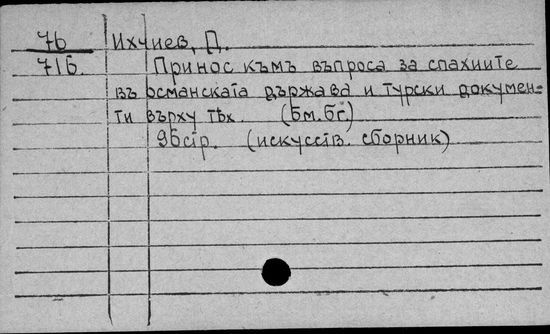 76 Ихчиев, Д.
716. Принос къмъ въпроса за спахиите
въ османската държава и турски докумен-
ти върху тѣх. (Бм.бг.)
96стр. (искусств. сборник)